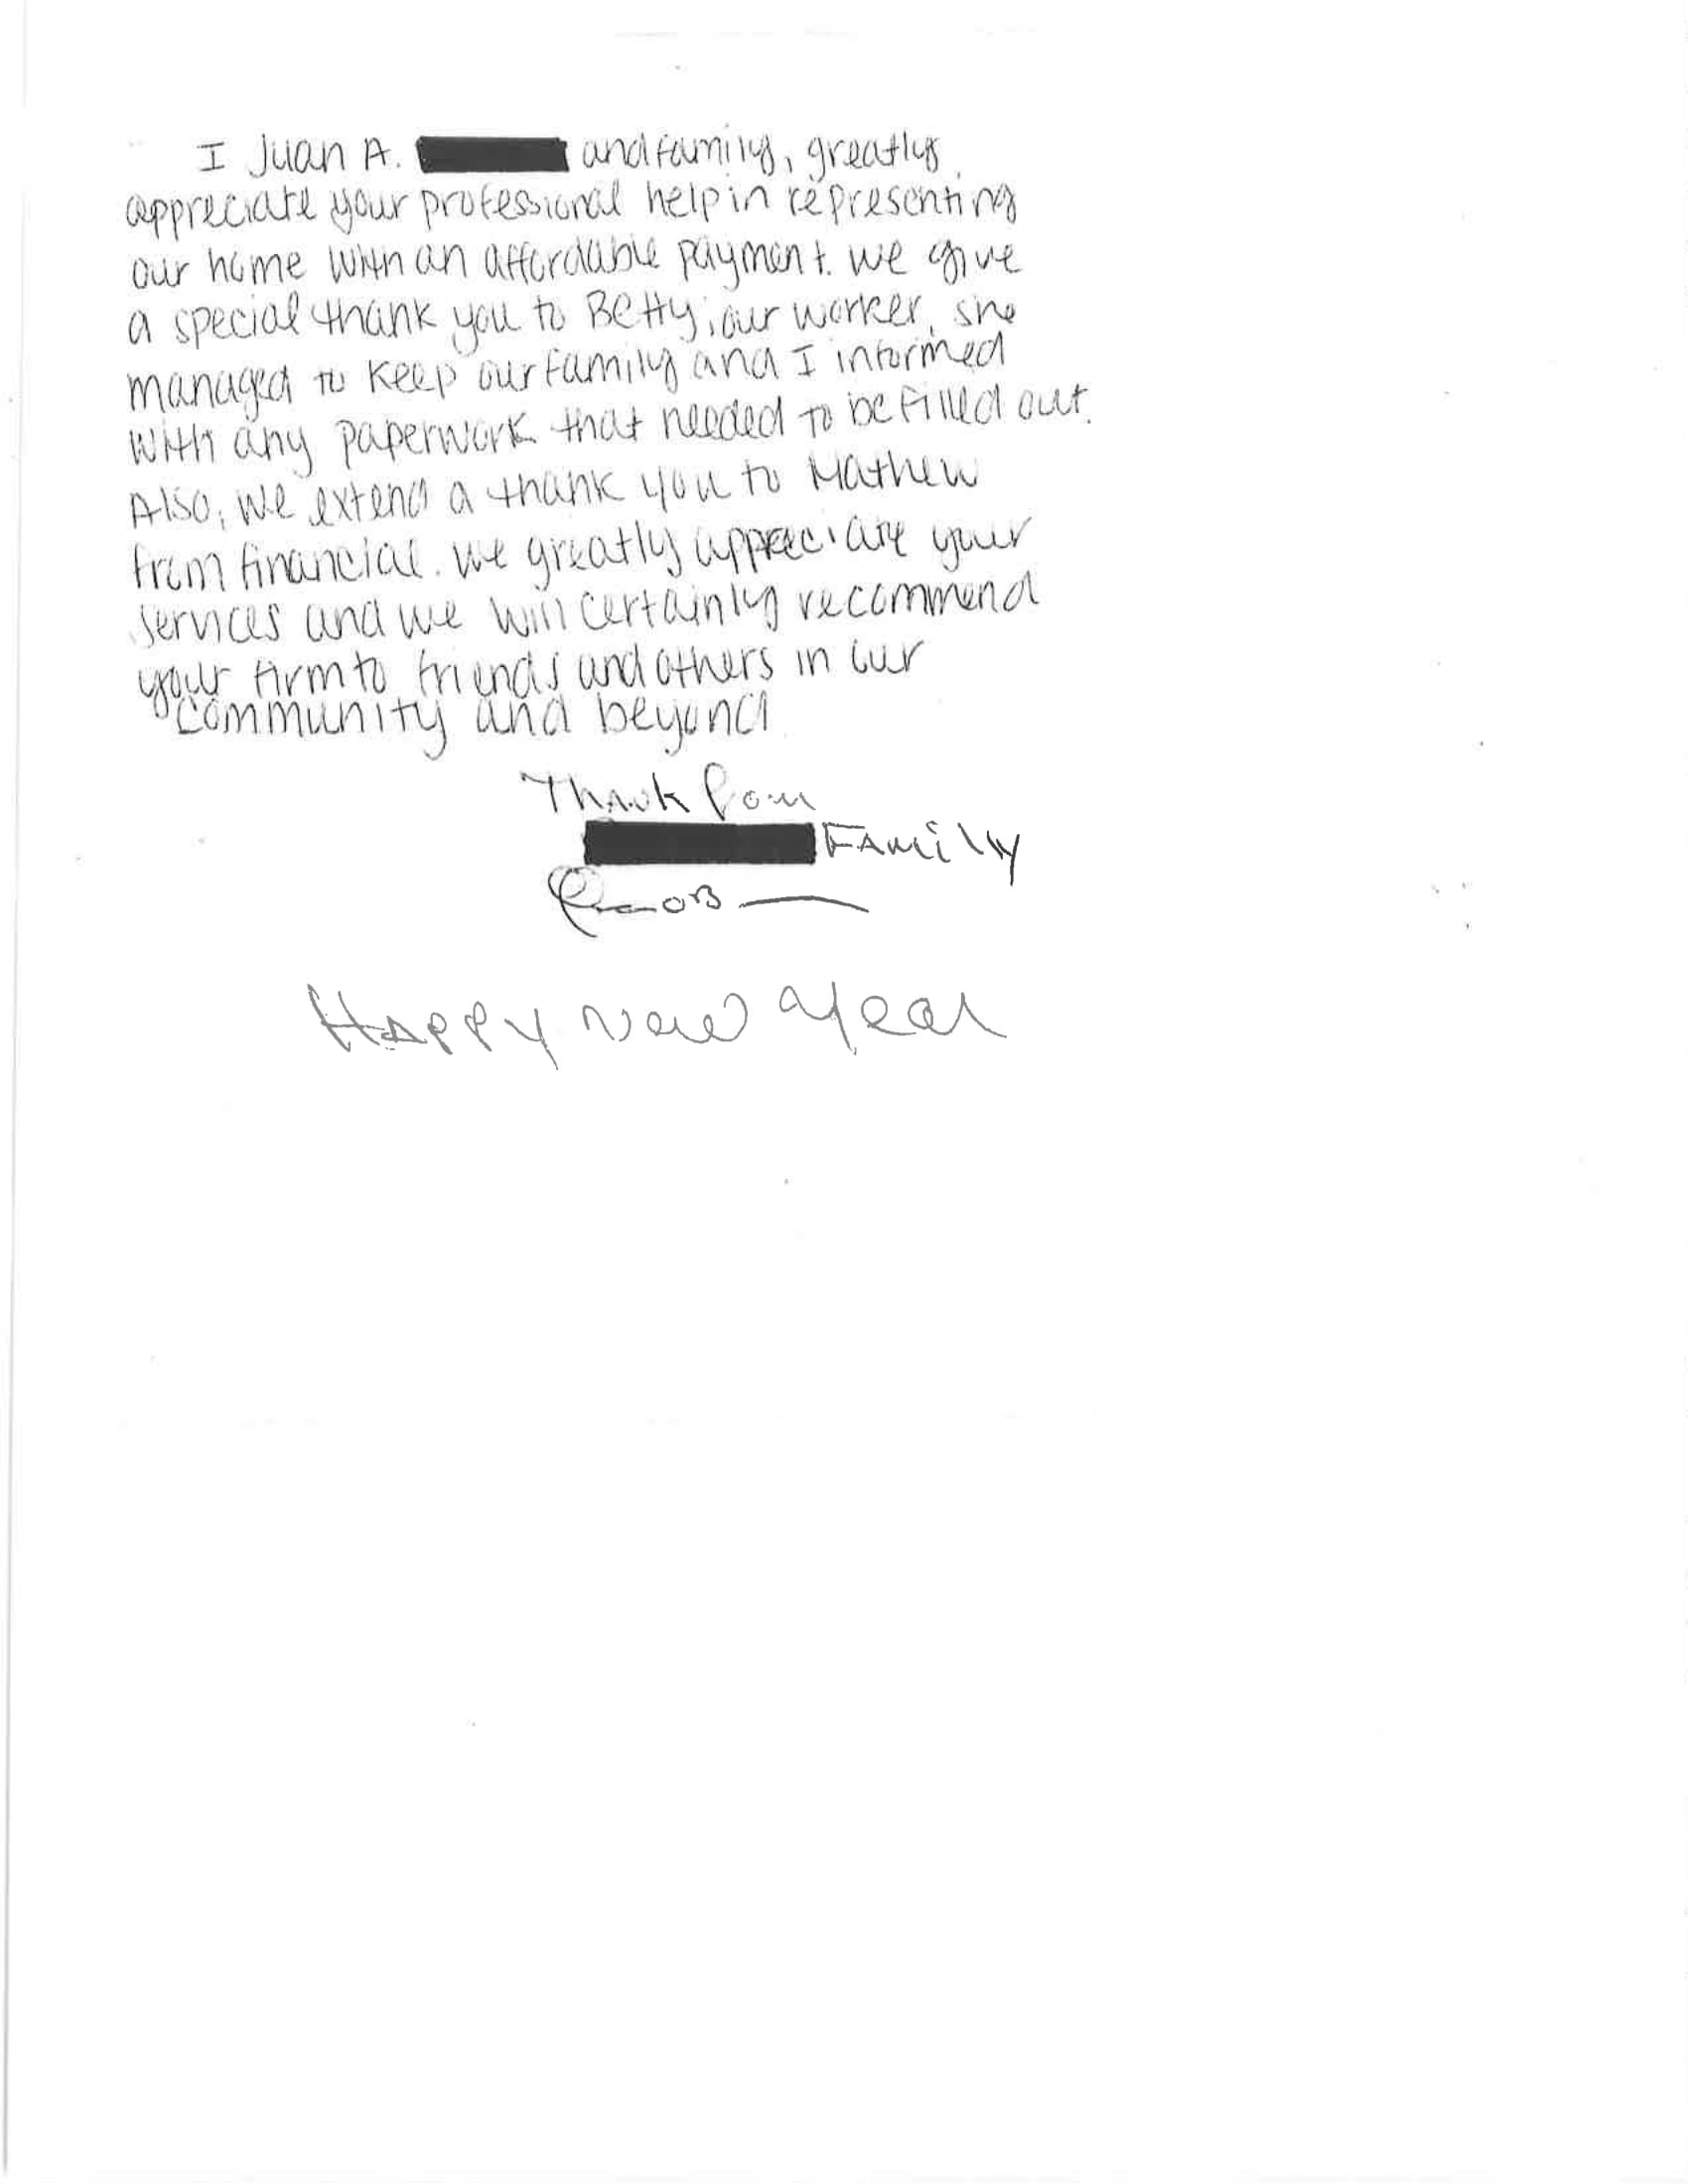 I Juan A. and family, greatly
appreciate your professional help in representing
our home with an affordable payment. we give
a special thank you to Betty, our worker, she
managed to keep our family and I informed
with any paperwork that needed to be filled out.
Also, we extend a thank you to Mathew
from financial. we greatly appreciate your
services and we will certainly recommend
your firm to friends and others in our
community and beyond
Thank you
Family
Happy New Year